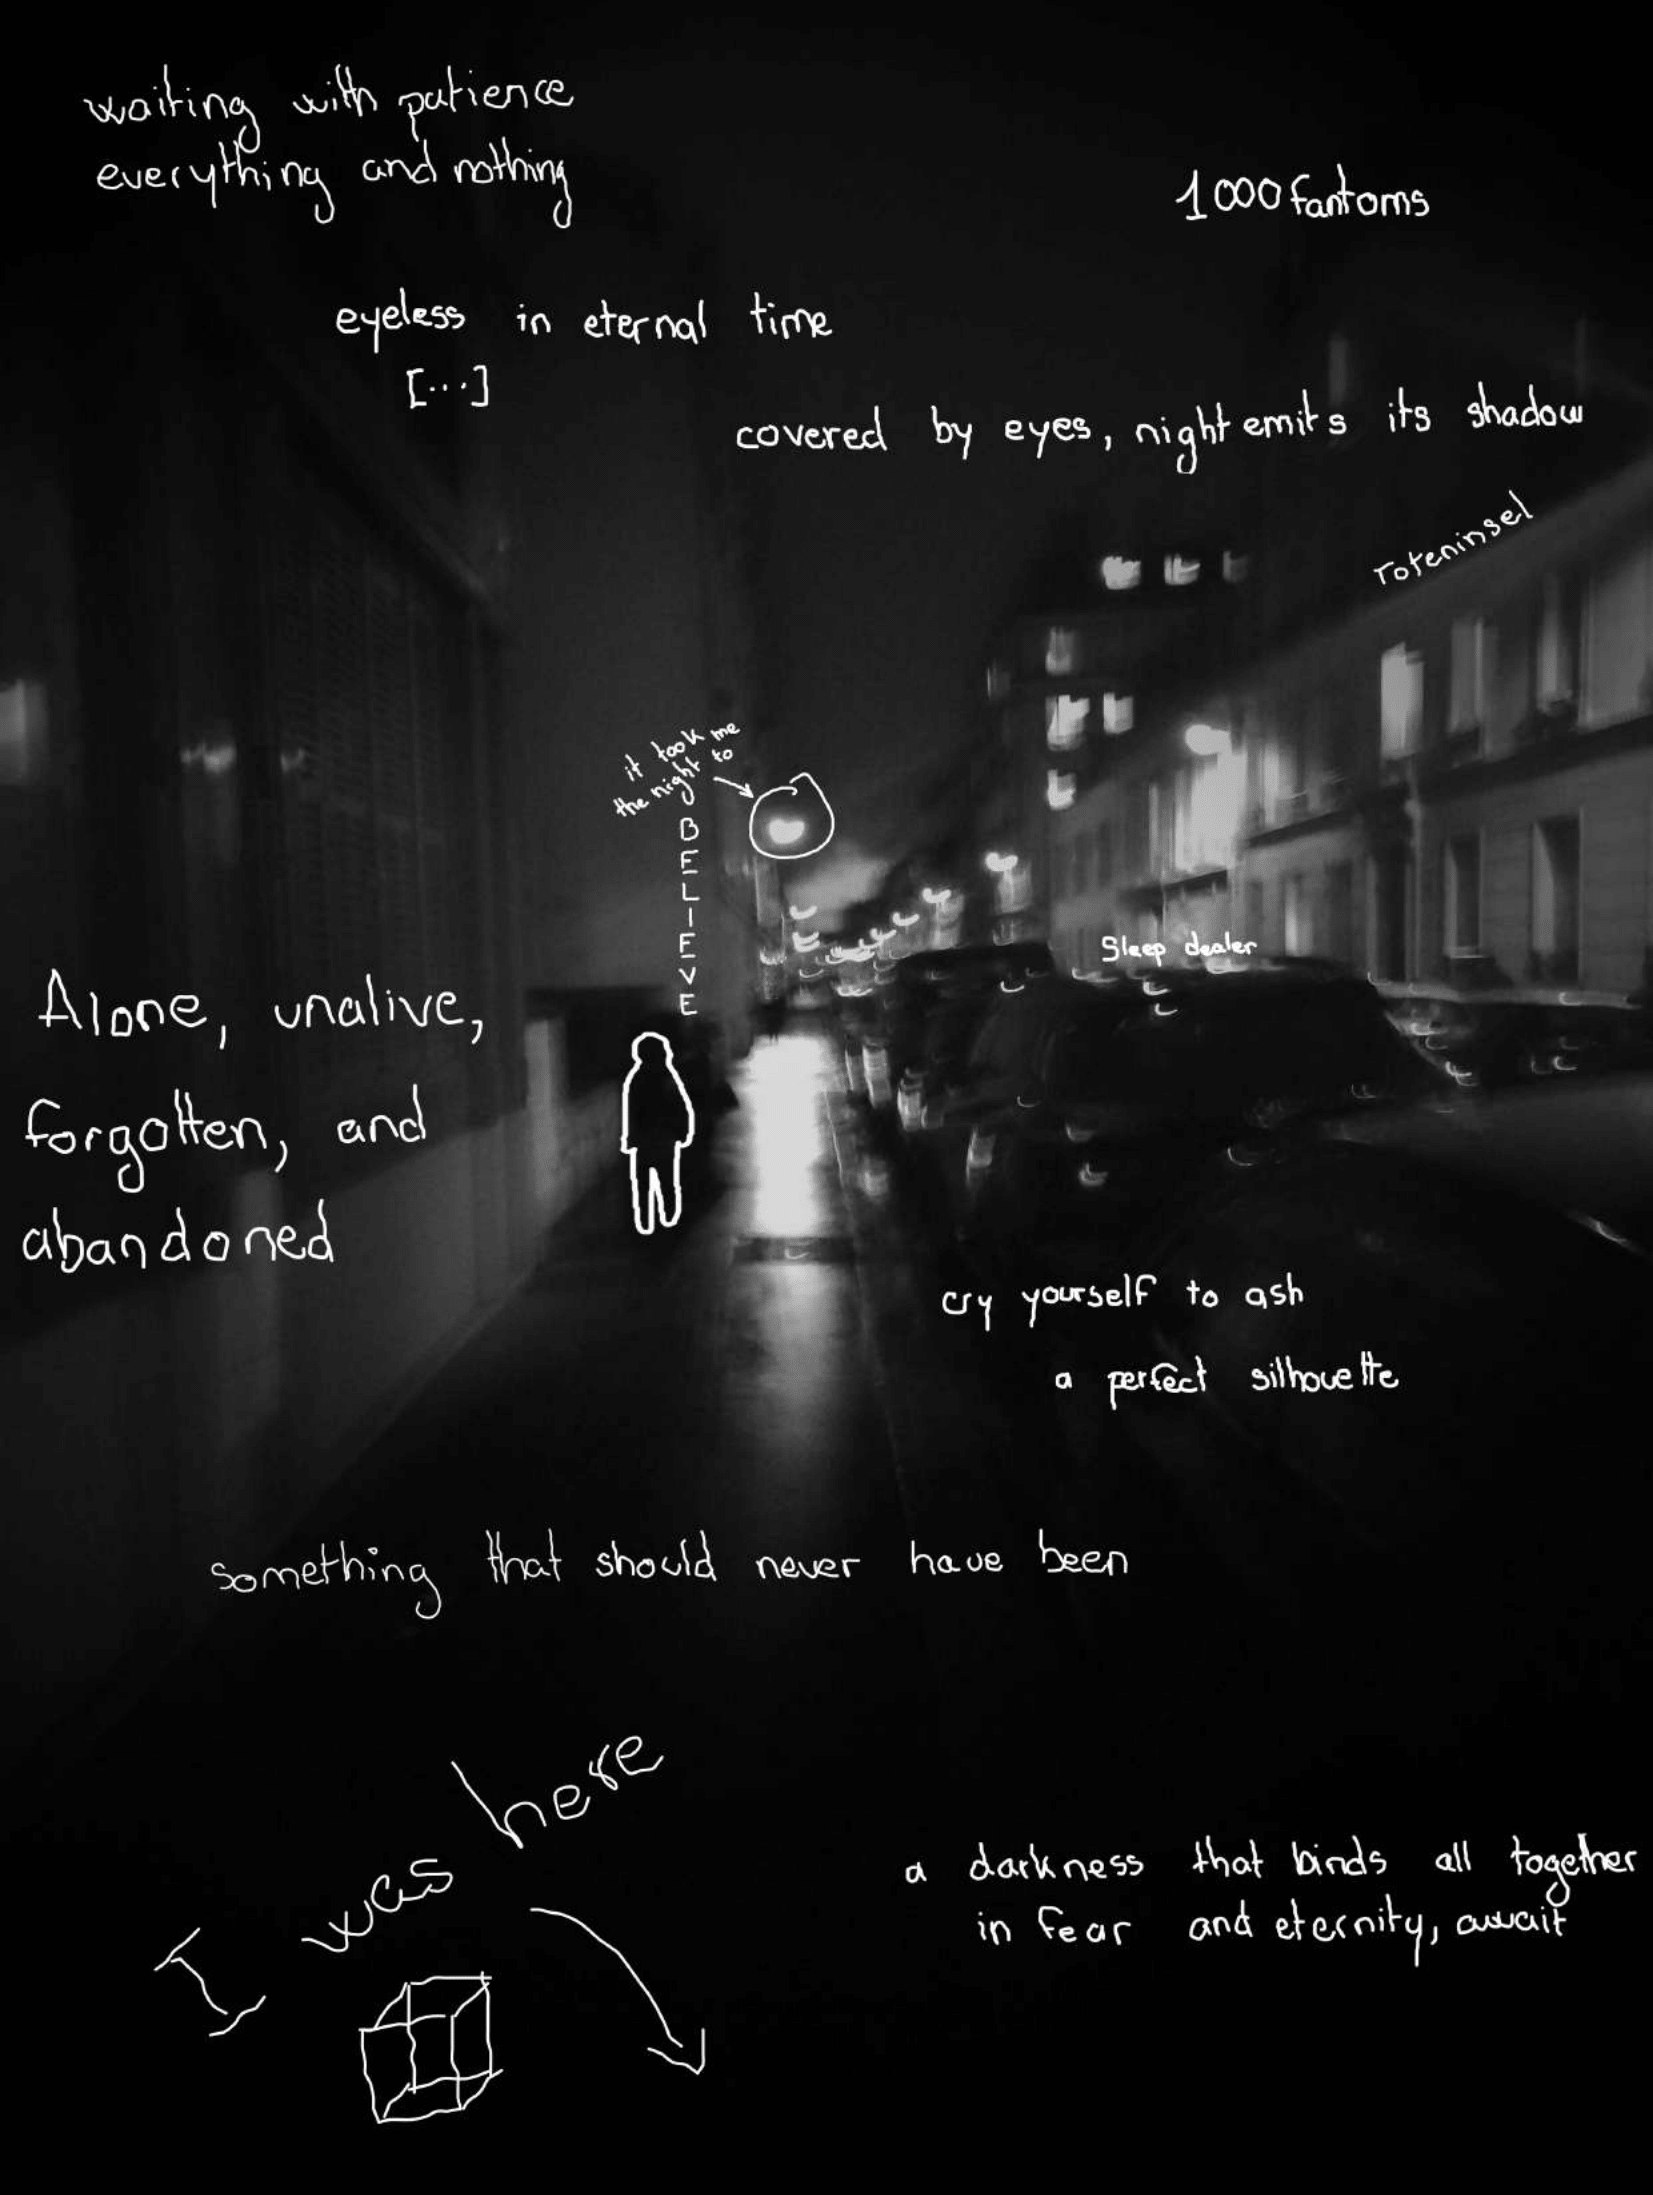 waiting with patience
everything and nothing
1000 fantoms
eyeless in eternal time
[...]
covered by eyes, night emits its shadow
Toteninsel
it took me
the night to
BELIEVE
Sleep dealer
Alone, unalive,
forgotten, and
abandoned
cry yourself to ash
a perfect silhouette
something that should never have been
I was here
a darkness that binds all together
in fear and eternity, await